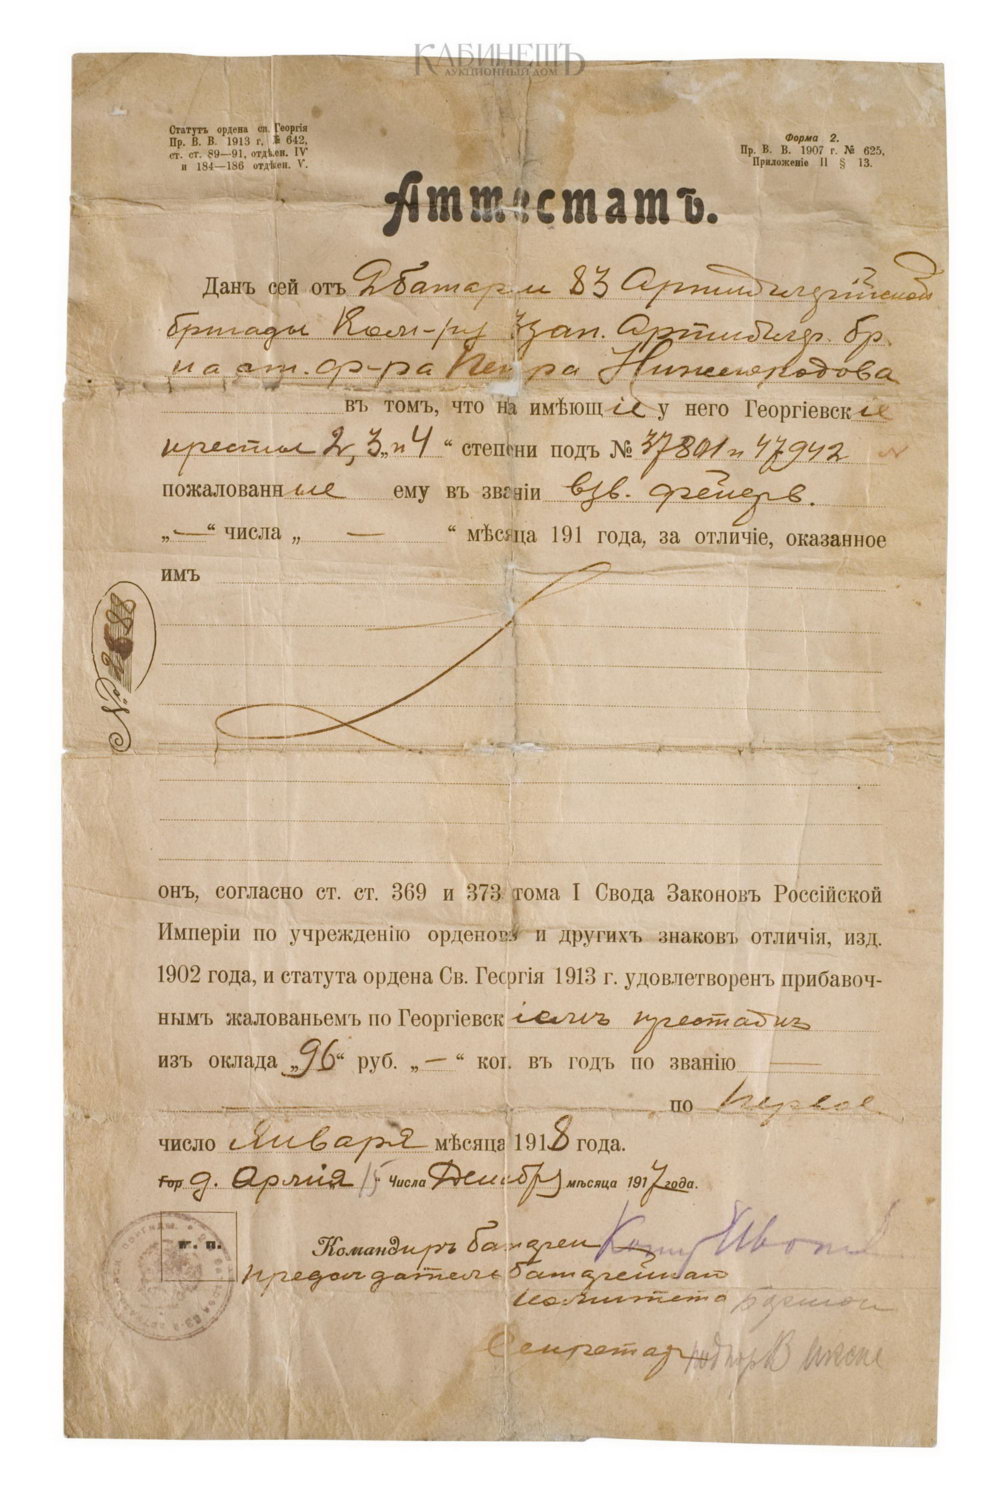 КАБИНЕТЪ
АУКЦИОННЫЙ ДОМ
Статутъ ордена св. Георгія
Пр. В. В. 1913 г. № 642,
ст. ст. 89—91, отдѣлен. IV
и 184—186 отдѣлен. V.
Форма 2.
Пр. В. В. 1907 г. № 625,
Приложеніе II § 13.
Аттестатъ.
Данъ сей отъ 2 батареи 83 Артиллерійской
бригады Кан-ру Артиллер. бр.
ф-ра Петра Нижегородова
въ томъ, что на имѣющіе у него Георгіевскіе
кресты 2, 3 „и 4“ степени подъ № 37801 и 47942
пожалованные ему въ званіи взв. фейерв.
„—“ числа „ — “ мѣсяца 191 года, за отличіе, оказанное
имъ
№
онъ, согласно ст. ст. 369 и 373 тома I Свода Законовъ Россійской
Имперіи по учрежденію орденовъ и другихъ знаковъ отличія, изд.
1902 года, и статута ордена Св. Георгія 1913 г. удовлетворенъ прибавоч-
нымъ жалованьемъ по Георгіевскіимъ крестамъ
изъ оклада „96“ руб. „—“ коп. въ годъ по званію —
по первое
число Января мѣсяца 1918 года.
Гор д. Армія 15 числа Декабря мѣсяца 1917 года.
м. п.
Командиръ батареи
Предсѣдатель батарейнаго
комитета
Секретарь